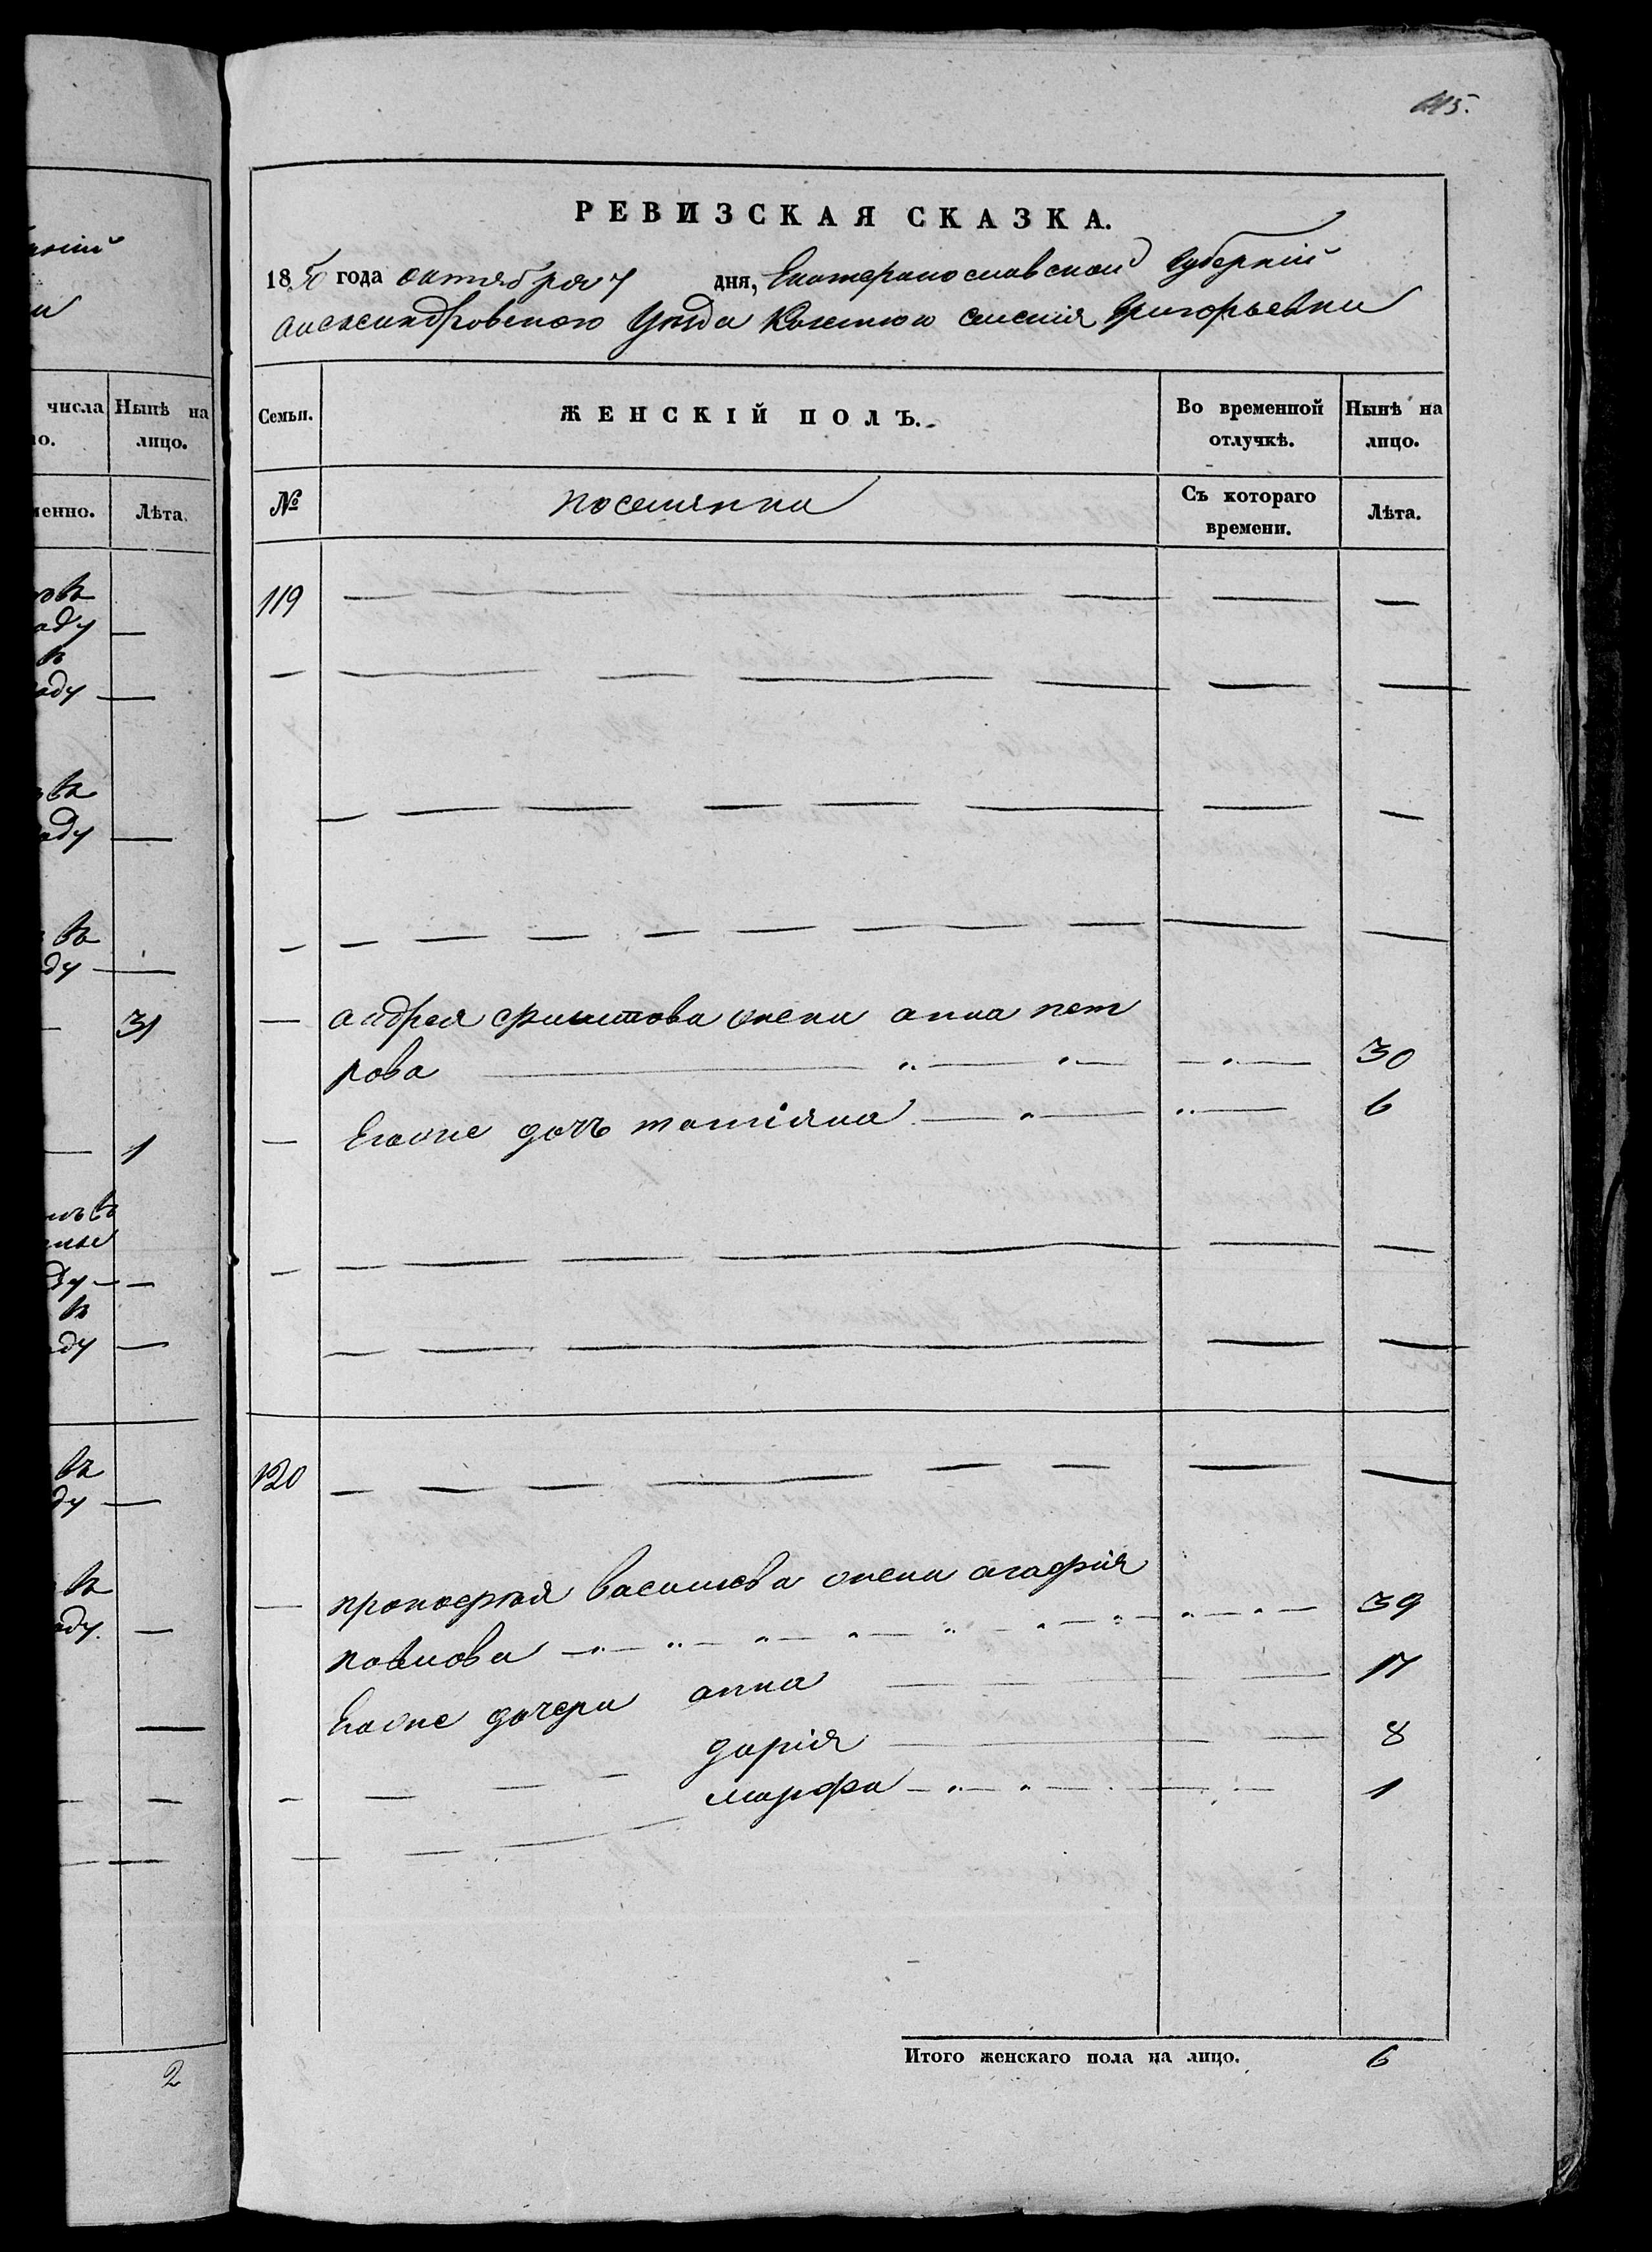 415.
РЕВИЗСКАЯ СКАЗКА.
1850 года октября 7 дня, Екатеринославской Губерній
Александровского Уезда Козенного селенія Григорьевки
Семьи. ЖЕНСКІЙ ПОЛЪ. Во временной отлучкѣ. Нынѣ на лицо.
№ поселянки Съ котораго времени. Лѣта.
119
андрея филатова жена анна пет
рова 30
Егоже дочь татіяна 6
120
прокофія васильева жена агафія
павлова 39
Егоже дочери анна 17
дарія 8
марфа 1
Итого женскаго пола на лицо. 6
числа Нынѣ на лицо.
Лѣта.
31
1
2